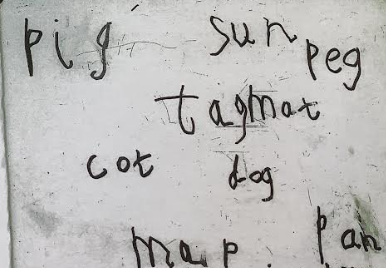 pig sun peg
tagmat
cot dog
map. pan